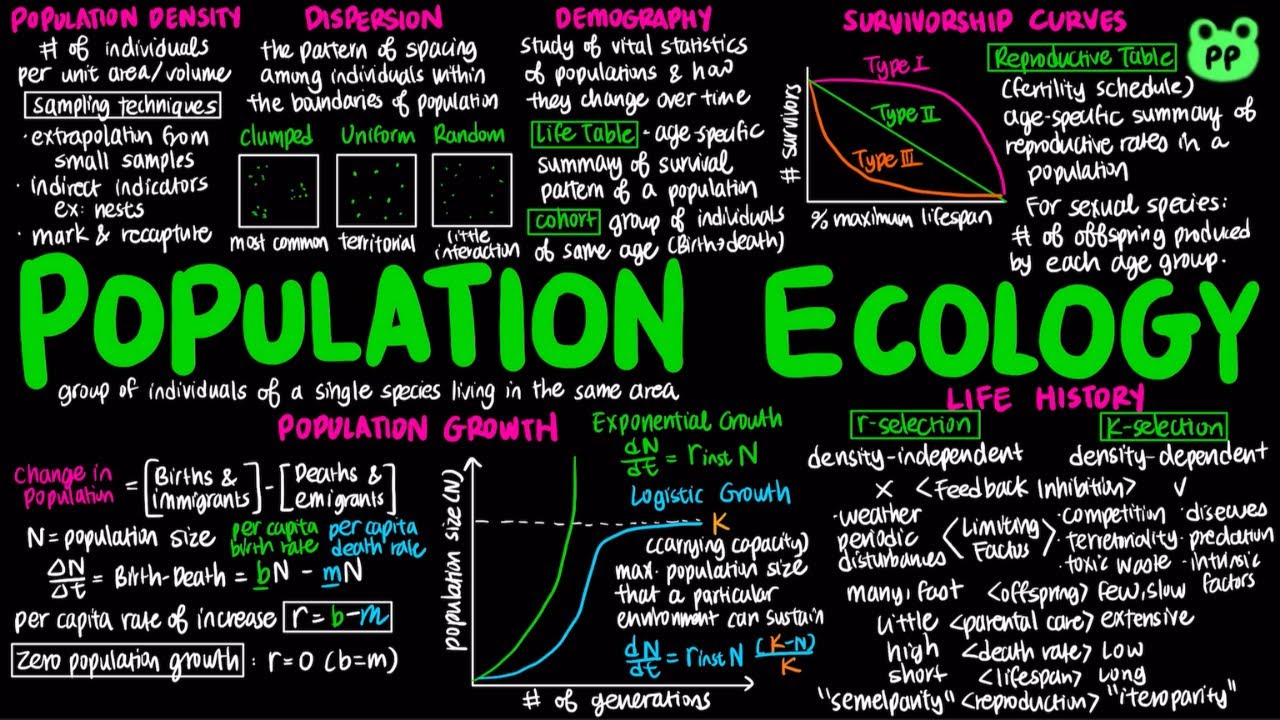 POPULATION DENSITY
# of individuals
per unit area/volume
sampling techniques
· extrapolation from
small samples
· indirect indicators
ex: nests
· mark & recapture
DISPERSION
the pattern of spacing
among individuals within
the boundaries of population
Clumped Uniform Random
most common territorial little
interaction
DEMOGRAPHY
study of vital statistics
of populations & how
they change over time
Life Table - age-specific
summary of survival
pattern of a population
cohort group of individuals
of same age (Birth→death)
SURVIVORSHIP CURVES
# survivors
Type I
Type II
Type III
% maximum lifespan
PP
Reproductive Table
(fertility schedule)
age-specific summary of
reproductive rates in a
population
For sexual species:
# of offspring produced
by each age group.
POPULATION ECOLOGY
group of individuals of a single species living in the same area
POPULATION GROWTH
Change in
Population = [Births &
immigrants] - [Deaths &
emigrants]
N = population size per capita
birth rate per capita
death rate
ΔN/Δt = Birth-Death = bN - mN
per capita rate of increase r = b-m
Zero population growth : r=0 (b=m)
population size (N)
# of generations
Exponential Growth
dN/dt = rinst N
Logistic Growth
K
(carrying capacity)
max. population size
that a particular
environment can sustain
dN/dt = rinst N (K-N)/K
LIFE HISTORY
r-selection K-selection
density-independent density-dependent
× <Feedback Inhibition> √
·weather
periodic
disturbances <Limiting
Factors> ·competition ·diseases
·terretoriality ·predation
·toxic waste ·intrinsic
factors
many, fast <offspring> few, slow
little <parental care> extensive
high <death rate> low
short <lifespan> long
"semelparity" <reproduction> "iteroparity"